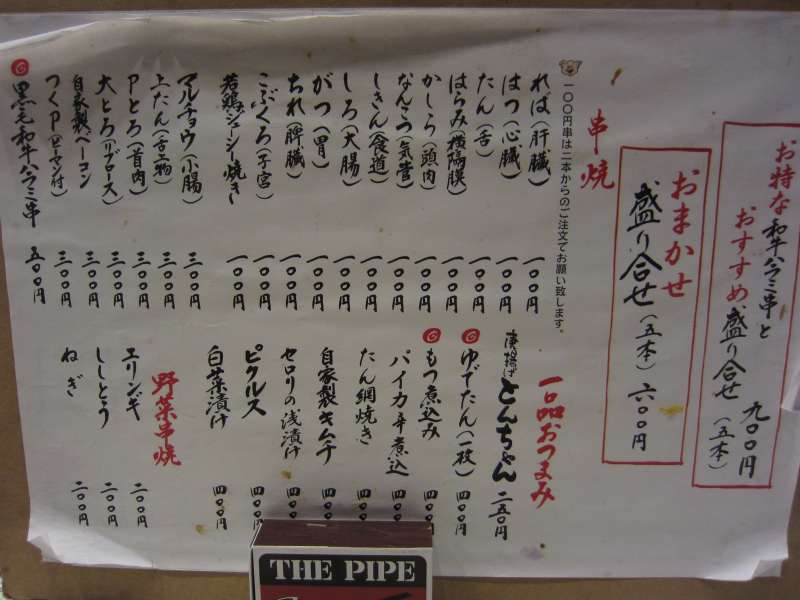 お得な和牛ハラミ串と
おすすめ盛り合せ(五本)
九〇〇円
おまかせ
盛り合せ(五本)六〇〇円
串焼
一〇〇円串は二本からのご注文でお願い致します。
れば(肝臓) 一〇〇円
はつ(心臓) 一〇〇円
たん(舌) 一〇〇円
はらみ(横隔膜) 一〇〇円
かしら(頭肉) 一〇〇円
なんこつ(気管) 一〇〇円
しきん(食道) 一〇〇円
しろ(大腸) 一〇〇円
がつ(胃) 一〇〇円
ちれ(脾臓) 一〇〇円
こぶくろ(子宮) 一〇〇円
若鶏ジューシー焼き 一〇〇円
マルチョウ(小腸) 三〇〇円
上たん(舌上物) 三〇〇円
Pとろ(首肉) 三〇〇円
大とろ(リブロース) 三〇〇円
自家製ベーコン 三〇〇円
つくP(ピーマン付) 三〇〇円
黒毛和牛ハラミ串 五〇〇円
一品おつまみ
唐揚げとんちゃん 二五〇円
ゆでたん(一枚) 四〇〇円
もつ煮込み 四〇〇円
パイカ辛煮込 四〇〇円
たん網焼き 四〇〇円
自家製キムチ 四〇〇円
セロリの浅漬け 四〇〇円
ピクルス 四〇〇円
白菜漬け 四〇〇円
野菜串焼
エリンギ 二〇〇円
ししとう 二〇〇円
ねぎ 二〇〇円
THE PIPE